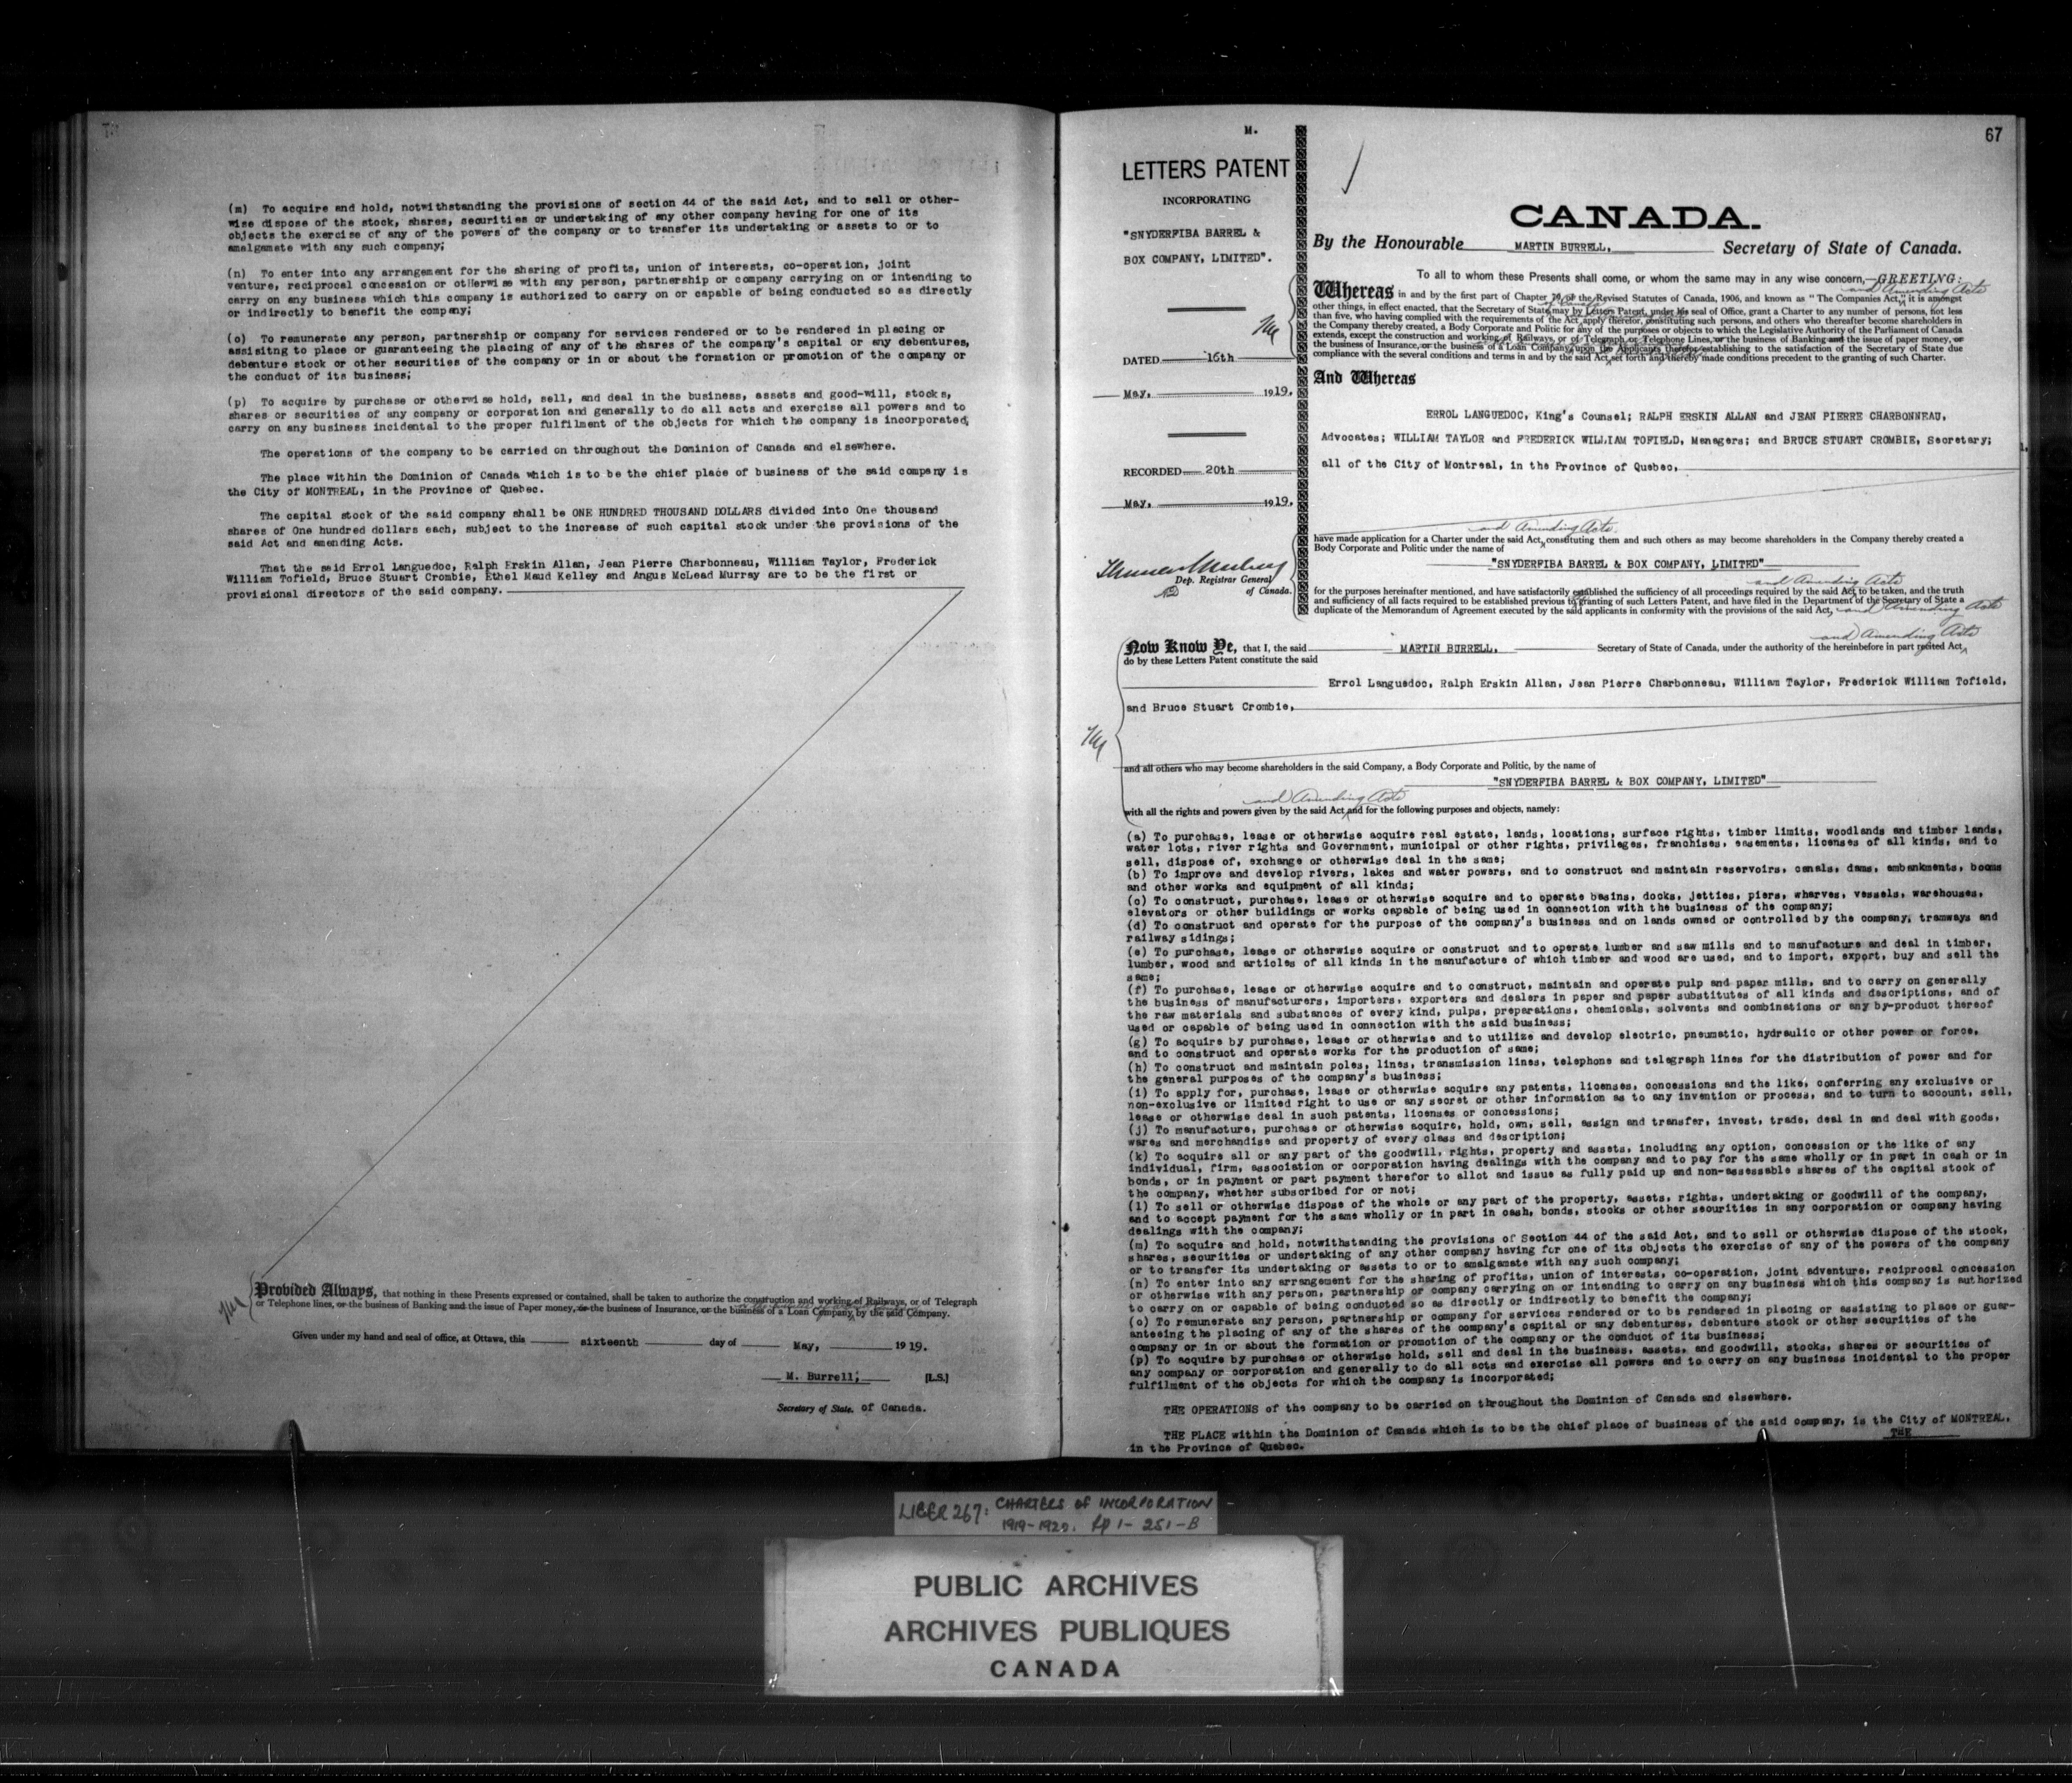 (m) To acquire and hold, notwithstanding the provisions of section 44 of the said Act, and to sell or other-
wise dispose of the stock, shares, securities or undertaking of any other company having for one of its
objects the exercise of any of the powers of the company or to transfer its undertaking or assets to or to
amalgamate with any such company;
(n) To enter into any arrangement for the sharing of profits, union of interests, co-operation, joint
venture, reciprocal concession or otherwise with any person, partnership or company carrying on or intending to
carry on any business which this company is authorized to carry on or capable of being conducted so as directly
or indirectly to benefit the company;
(o) To remunerate any person, partnership or company for services rendered or to be rendered in placing or
assisitng to place or guaranteeing the placing of any of the shares of the company's capital or any debentures,
debenture stock or other securities of the company or in or about the formation or promotion of the company or
the conduct of its business;
(p) To acquire by purchase or otherwise hold, sell, and deal in the business, assets and good-will, stocks,
shares or securities of any company or corporation and generally to do all acts and exercise all powers and to
carry on any business incidental to the proper fulfilment of the objects for which the company is incorporated,
The operations of the company to be carried on throughout the Dominion of Canada and elsewhere.
The place within the Dominion of Canada which is to be the chief place of business of the said company is
the City of MONTREAL, in the Province of Quebec.
The capital stock of the said company shall be ONE HUNDRED THOUSAND DOLLARS divided into One thousand
shares of One hundred dollars each, subject to the increase of such capital stock under the provisions of the
said Act and amending Acts.
That the said Errol Languedoc, Ralph Erskin Allan, Jean Pierre Charbonneau, William Taylor, Frederick
William Tofield, Bruce Stuart Crombie, Ethel Maud Kelley and Angus McLead Murray are to be the first or
provisional directors of the said company.
Provided Always, that nothing in these Presents expressed or contained, shall be taken to authorize the construction and working of Railways, or of Telegraph
or Telephone lines, or the business of Banking and the issue of Paper money, or the business of Insurance, or the business of a Loan Company, by the said Company.
Given under my hand and seal of office, at Ottawa, this sixteenth day of May, 1919.
M. Burrell, [L.S.]
Secretary of State. of Canada.
67
M.
LETTERS PATENT
INCORPORATING
"SNYDERFIBA BARREL &
BOX COMPANY, LIMITED".
DATED 16th
May, 1919.
RECORDED 20th
May, 1919.
Dep. Registrar General
of Canada.
CANADA.
By the Honourable MARTIN BURRELL, Secretary of State of Canada.
To all to whom these Presents shall come, or whom the same may in any wise concern,—GREETING:
and Amending Acts
Whereas in and by the first part of Chapter 79 of the Revised Statutes of Canada, 1906, and known as "The Companies Act," it is amongst
other things, in effect enacted, that the Secretary of State may by Letters Patent, under his seal of Office, grant a Charter to any number of persons, not less
than five, who having complied with the requirements of the Act apply therefor, constituting such persons, and others who thereafter become shareholders in
the Company thereby created, a Body Corporate and Politic for any of the purposes or objects to which the Legislative Authority of the Parliament of Canada
extends, except the construction and working of Railways, or of Telegraph or Telephone Lines, or the business of Banking and the issue of paper money, or
the business of Insurance, or the business of a Loan Company, upon the Applicants therefor establishing to the satisfaction of the Secretary of State due
compliance with the several conditions and terms in and by the said Act set forth and thereby made conditions precedent to the granting of such Charter.
And Whereas
ERROL LANGUEDOC, King's Counsel; RALPH ERSKIN ALLAN and JEAN PIERRE CHARBONNEAU,
Advocates; WILLIAM TAYLOR and FREDERICK WILLIAM TOFIELD, Managers; and BRUCE STUART CROMBIE, Secretary;
all of the City of Montreal, in the Province of Quebec,
and Amending Acts
have made application for a Charter under the said Act, constituting them and such others as may become shareholders in the Company thereby created a
Body Corporate and Politic under the name of
"SNYDERFIBA BARREL & BOX COMPANY, LIMITED"
and Amending Acts
for the purposes hereinafter mentioned, and have satisfactorily established the sufficiency of all proceedings required by the said Act to be taken, and the truth
and sufficiency of all facts required to be established previous to granting of such Letters Patent, and have filed in the Department of the Secretary of State a
duplicate of the Memorandum of Agreement executed by the said applicants in conformity with the provisions of the said Act, and Amending Acts
and Amending Acts
Now Know Ye, that I, the said MARTIN BURRELL. Secretary of State of Canada, under the authority of the hereinbefore in part recited Act
do by these Letters Patent constitute the said
Errol Languedoc, Ralph Erskin Allan, Jean Pierre Charbonneau, William Taylor, Frederick William Tofield,
and Bruce Stuart Crombie,
and all others who may become shareholders in the said Company, a Body Corporate and Politic, by the name of
"SNYDERFIBA BARREL & BOX COMPANY, LIMITED"
and Amending Acts
with all the rights and powers given by the said Act and for the following purposes and objects, namely:
(a) To purchase, lease or otherwise acquire real estate, lands, locations, surface rights, timber limits, woodlands and timber lands,
water lots, river rights and Government, municipal or other rights, privileges, franchises, easements, licenses of all kinds, and to
sell, dispose of, exchange or otherwise deal in the same;
(b) To improve and develop rivers, lakes and water powers, and to construct and maintain reservoirs, canals, dams, embankments, booms
and other works and equipment of all kinds;
(c) To construct, purchase, lease or otherwise acquire and to operate basins, docks, jetties, piers, wharves, vessels, warehouses,
elevators or other buildings or works capable of being used in connection with the business of the company;
(d) To construct and operate for the purpose of the company's business and on lands owned or controlled by the company, tramways and
railway sidings;
(e) To purchase, lease or otherwise acquire or construct and to operate lumber and saw mills and to manufacture and deal in timber,
lumber, wood and articles of all kinds in the manufacture of which timber and wood are used, and to import, export, buy and sell the
same;
(f) To purchase, lease or otherwise acquire and to construct, maintain and operate pulp and paper mills, and to carry on generally
the business of manufacturers, importers, exporters and dealers in paper and paper substitutes of all kinds and descriptions, and of
the raw materials and substances of every kind, pulps, preparations, chemicals, solvents and combinations or any by-product thereof
used or capable of being used in connection with the said business;
(g) To acquire by purchase, lease or otherwise and to utilize and develop electric, pneumatic, hydraulic or other power or force,
and to construct and operate works for the production of same;
(h) To construct and maintain poles, lines, transmission lines, telephone and telegraph lines for the distribution of power and for
the general purposes of the company's business;
(i) To apply for, purchase, lease or otherwise acquire any patents, licenses, concessions and the like, conferring any exclusive or
non-exclusive or limited right to use or any secret or other information as to any invention or process, and to turn to account, sell,
lease or otherwise deal in such patents, licenses or concessions;
(j) To manufacture, purchase or otherwise acquire, hold, own, sell, assign and transfer, invest, trade, deal in and deal with goods,
wares and merchandise and property of every class and description;
(k) To acquire all or any part of the goodwill, rights, property and assets, including any option, concession or the like of any
individual, firm, association or corporation having dealings with the company and to pay for the same wholly or in part in cash or in
bonds, or in payment or part payment therefor to allot and issue as fully paid up and non-assessable shares of the capital stock of
the company, whether subscribed for or not;
(l) To sell or otherwise dispose of the whole or any part of the property, assets, rights, undertaking or goodwill of the company,
and to accept payment for the same wholly or in part in cash, bonds, stocks or other securities in any corporation or company having
dealings with the company;
(m) To acquire and hold, notwithstanding the provisions of Section 44 of the said Act, and to sell or otherwise dispose of the stock,
shares, securities or undertaking of any other company having for one of its objects the exercise of any of the powers of the company
or to transfer its undertaking or assets to or to amalgamate with any such company;
(n) To enter into any arrangement for the sharing of profits, union of interests, co-operation, joint adventure, reciprocal concession
or otherwise with any person, partnership or company carrying on or intending to carry on any business which this company is authorized
to carry on or capable of being conducted so as directly or indirectly to benefit the company;
(o) To remunerate any person, partnership or company for services rendered or to be rendered in placing or assisting to place or guar-
anteeing the placing of any of the shares of the company's capital or any debentures, debenture stock or other securities of the
company or in or about the formation or promotion of the company or the conduct of its business;
(p) To acquire by purchase or otherwise hold, sell and deal in the business, assets, and goodwill, stocks, shares or securities of
any company or corporation and generally to do all acts and exercise all powers and to carry on any business incidental to the proper
fulfilment of the objects for which the company is incorporated;
THE OPERATIONS of the company to be carried on throughout the Dominion of Canada and elsewhere.
THE PLACE within the Dominion of Canada which is to be the chief place of business of the said company, is the City of MONTREAL,
in the Province of Quebec.
THE
LIBER 267: CHARTERS OF INCORPORATION
1919-1920. pp 1-251-B
PUBLIC ARCHIVES
ARCHIVES PUBLIQUES
CANADA